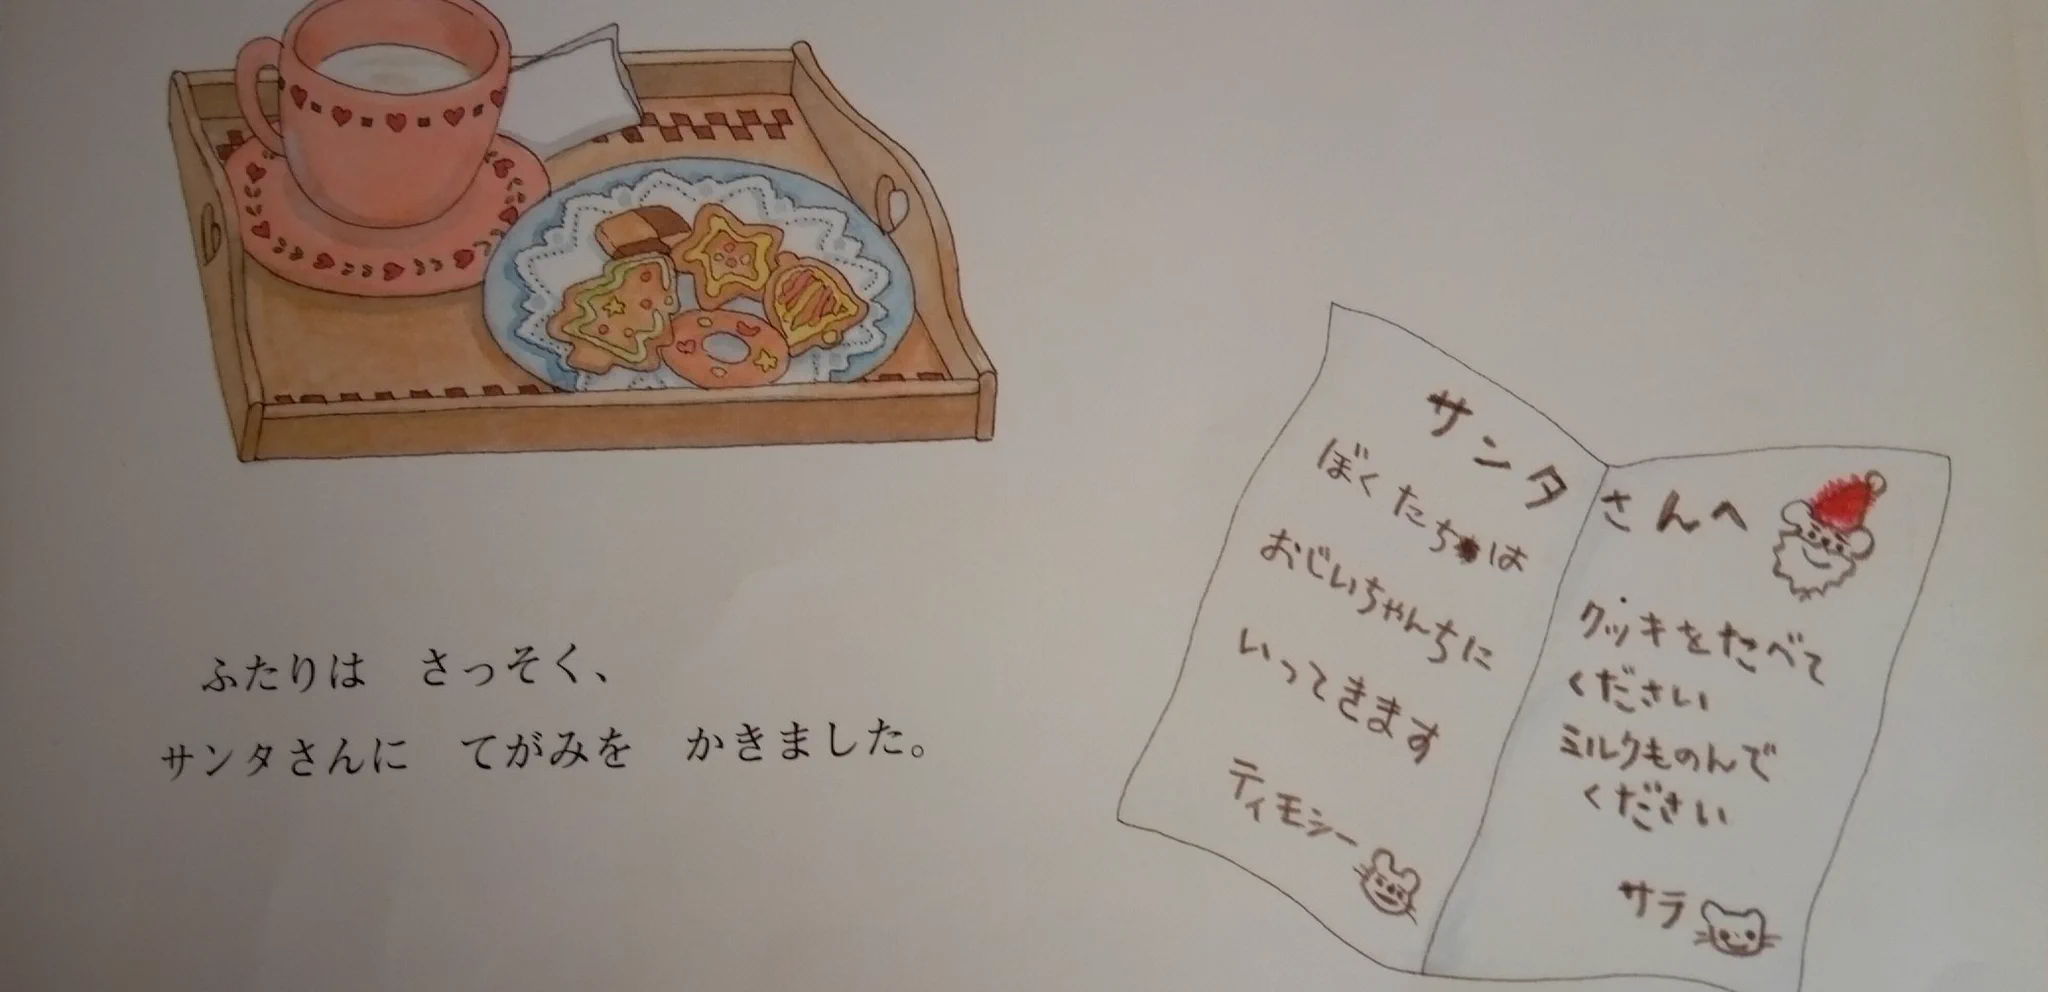 ふたりは　さっそく、
サンタさんに　てがみを　かきました。
サンタさんへ
ぼくたちは
おじいちゃんちに
いってきます
ティモシー
クッキをたべて
ください
ミルクものんで
ください
サラ